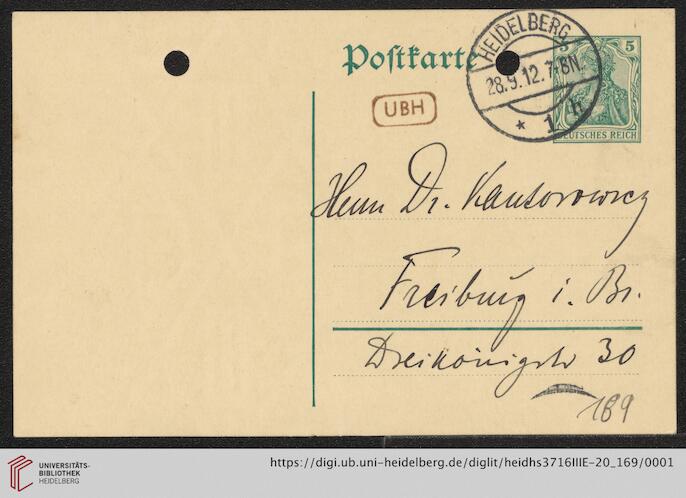 Postkarte
HEIDELBERG
28.9.12.7-8N.
* 1 h
5
DEUTSCHES REICH
UBH
Herrn Dr. Kantorowicz
Freiburg i. Br.
Dreikönigstr 30
169
UNIVERSITÄTS-
BIBLIOTHEK
HEIDELBERG
https://digi.ub.uni-heidelberg.de/diglit/heidhs3716IIIE-20_169/0001